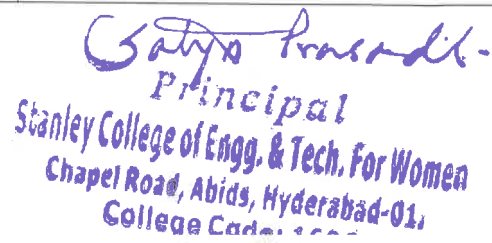 Satya Prasad
Principal
Stanley College of Engg. & Tech. For Women
Chapel Road, Abids, Hyderabad-01.
College Code: